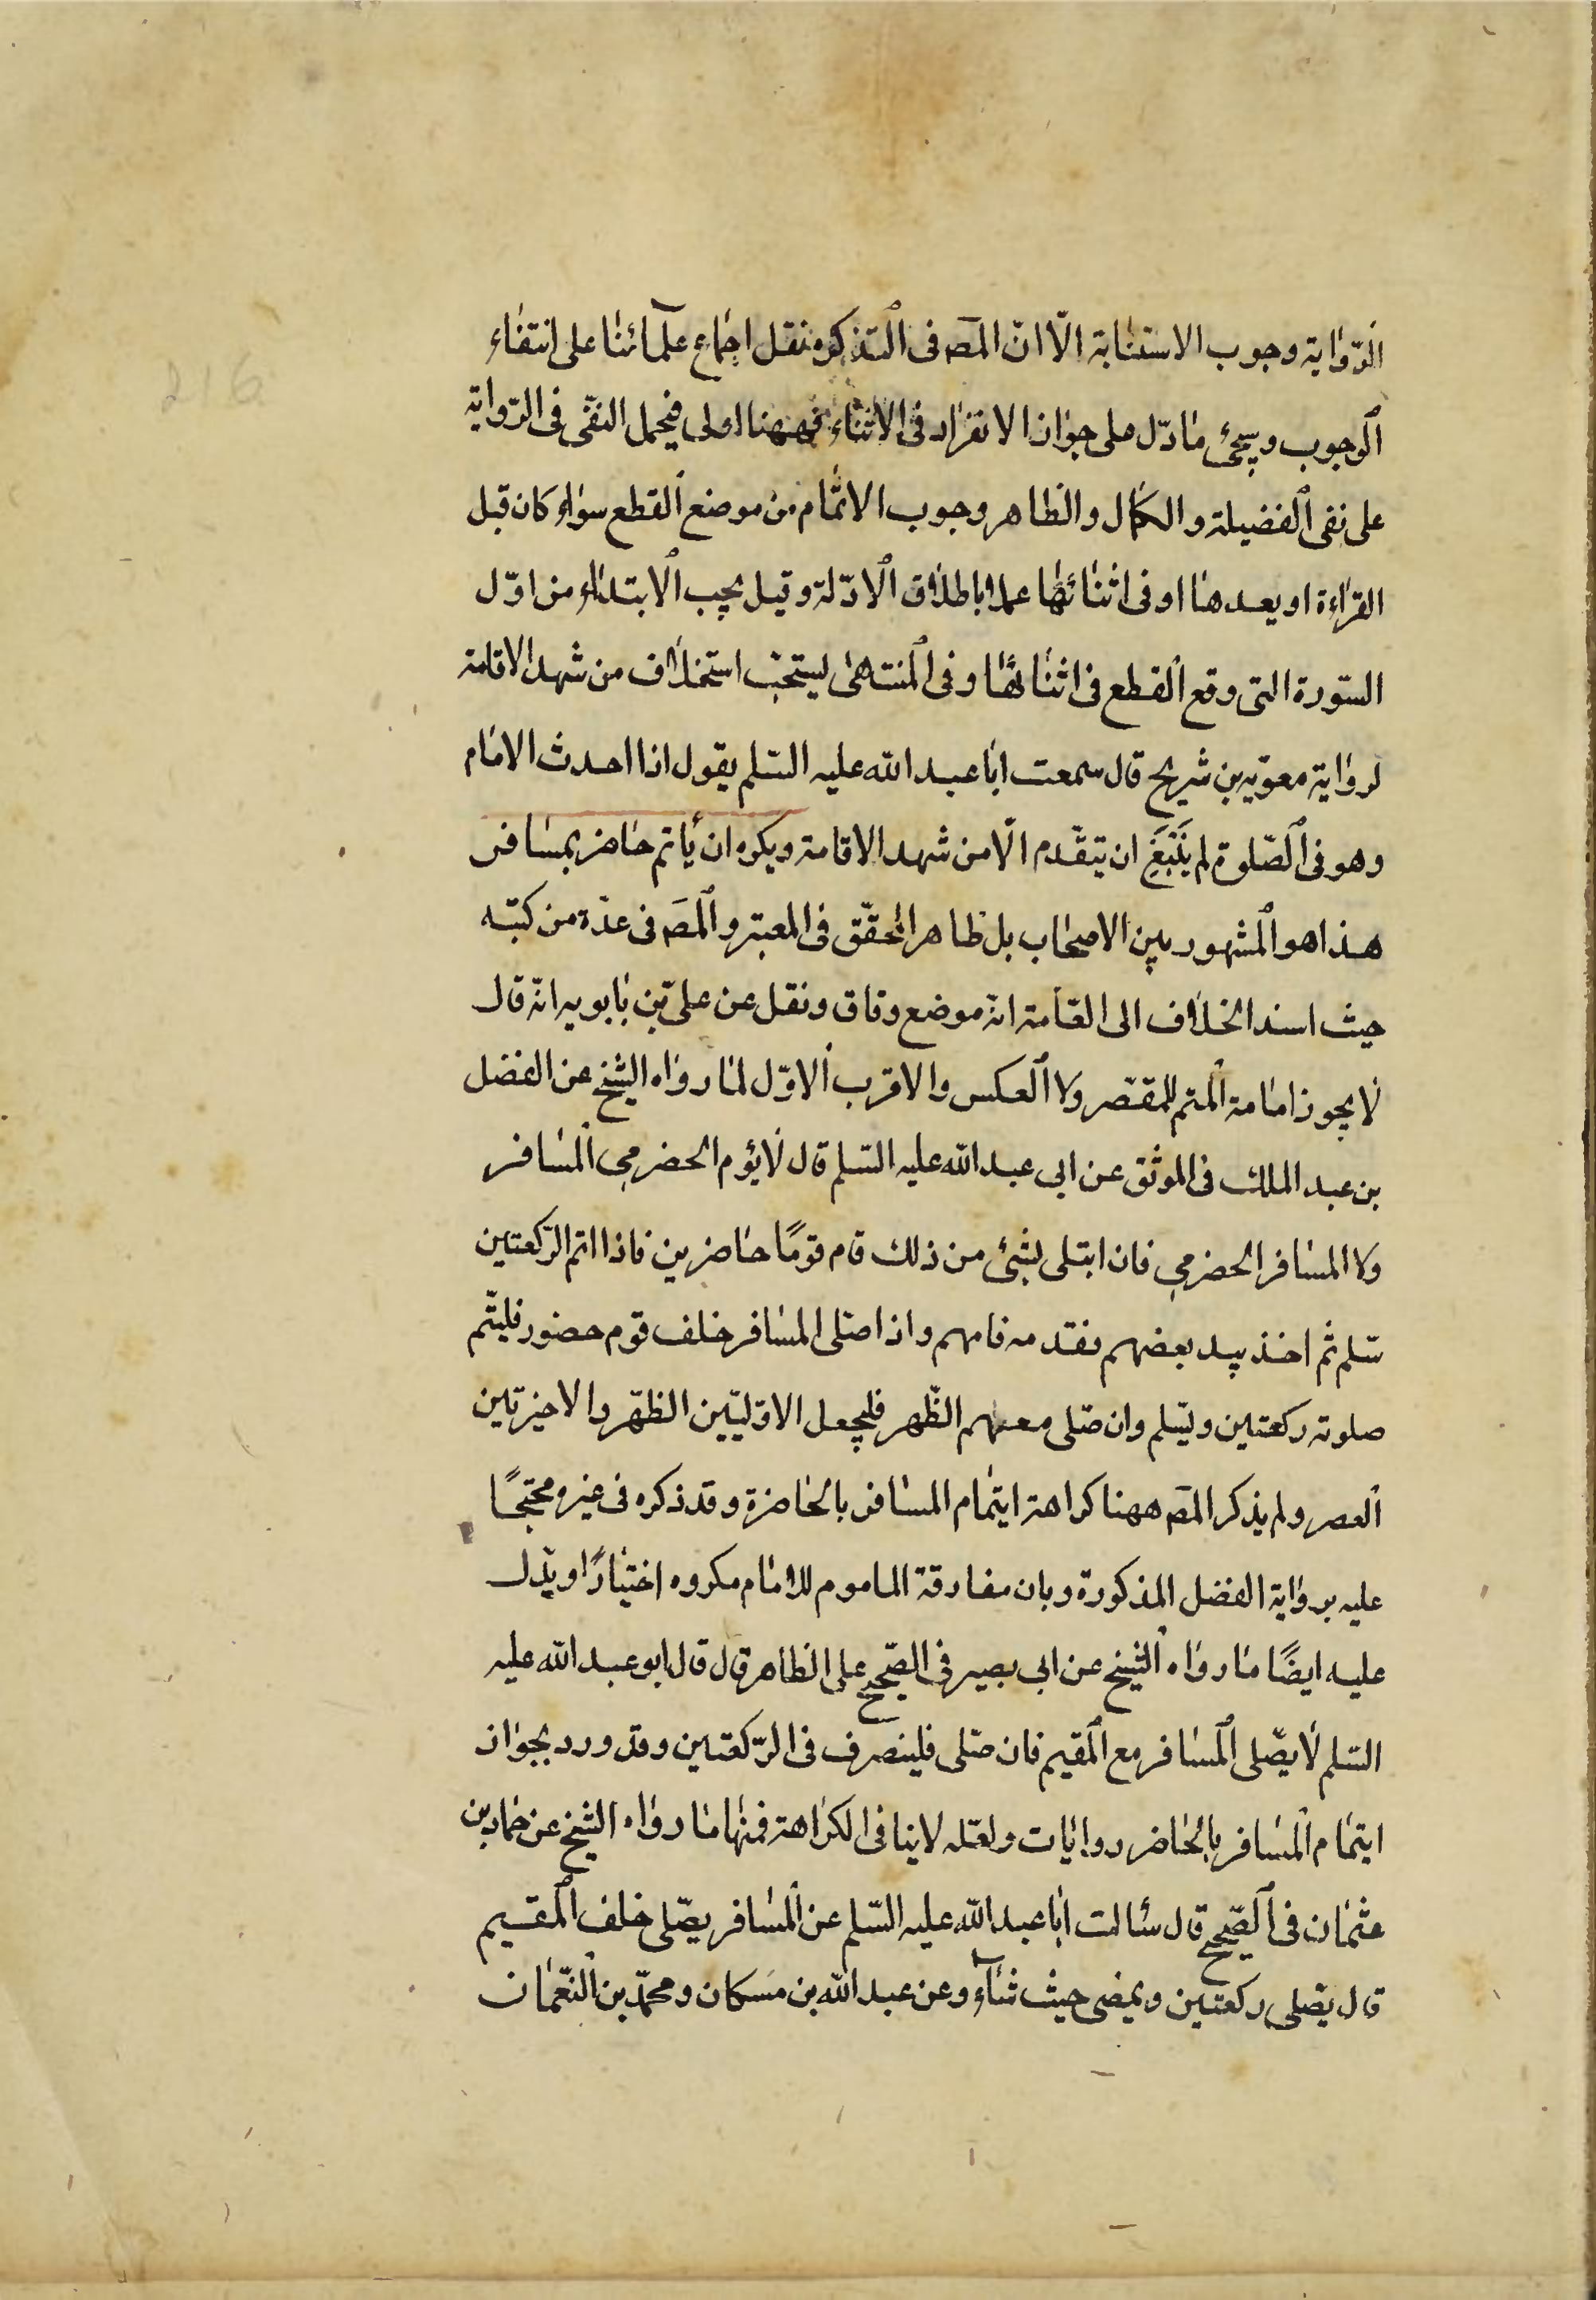 216
الرّواية وجوب الاستنابة الّا انّ المصَ فى التذكره نقل اجماع علمآئنا على انتفاء
الوجوب وسيجئ ما دلّ على جواز الانفراد فى الاثناء فههنا اولى فيحمل النفى فى الرّواية
على نفى الفضيلة والكمال والظاهر وجوب الاتمام من موضع القطع سواء كان قبل
القراءة او بعدها او فى اثنائها عملا باطلاق الادّلة وقيل يجب الابتداء من اوّل
السّورة التى وقع القطع فى اثنائها وفى المنتهى يستحبّ استخلاف من شهد الاقامة
لرواية معوية بن شريح قال سمعت ابا عبد الله عليه السّلم يقول اذا احدث الامام
وهو فى الصّلوة لم يَنْبَغِ ان يتقّدم الّا من شهد الاقامة ويكره ان يأتم حاضر بمسافر
هذا هو المشهور بين الاصحاب بل ظاهر المحقّق فى المعتبر والمصَ فى عدّة من كتبه
حيث اسند الخلاف الى العامّة انّه موضع وفاق ونقل عن علىّ بن بابويه انّه قال
لا يجوز امامة المتم للمقصّر ولا العكس والاقرب الاوّل لما رواه الشّيخ عن الفضل
بن عبد الملك فى الموثّق عن ابى عبد الله عليه السّلم قال لا يؤم الحضرمى المسافر
ولا المسافر الحضرمى فان ابتلى بشئ من ذلك فام قومًا حاضرين فاذا اتم الرّكعتين
سّلم ثم اخذ بيد بعضهم فقدمه فامهم واذا صلى المسافر خلف قوم حضور فليتّم
صلوته ركعتين ويسّلم وان صّلى معهم الظّهر فليجعل الاوّليّين الظهر والاخيرتين
العصر ولم يذكر المصَ ههنا كراهة ايتمام المسافر بالحاضرة وقد ذكره فى غيره محتجًّا
عليه برواية الفضل المذكورة وبان مفارقة الماموم للامام مكروه اختيارًا ويدّل
عليه ايضًا ما رواه الشّيخ عن ابى بصير فى الصّحيح على الظاهر قال قال ابو عبد الله عليه
السّلم لا يصّلى المسافر مع المقيم فان صّلى فلينصرف فى الرّكعتين وقد ورد بجواز
ايتمام المسافر بالحاضر روايات ولعّله لا ينافى الكراهة فمنها ما رواه الشّيخ عن حماد بن
عثمان فى الصّحيح قال سئالت ابا عبد الله عليه السّلم عن المسافر يصّلى خلف المقيم
قال يصّلى ركعتين ويمضى حيث شآء وعن عبد الله بن مسكان ومحمّد بن النّعمان